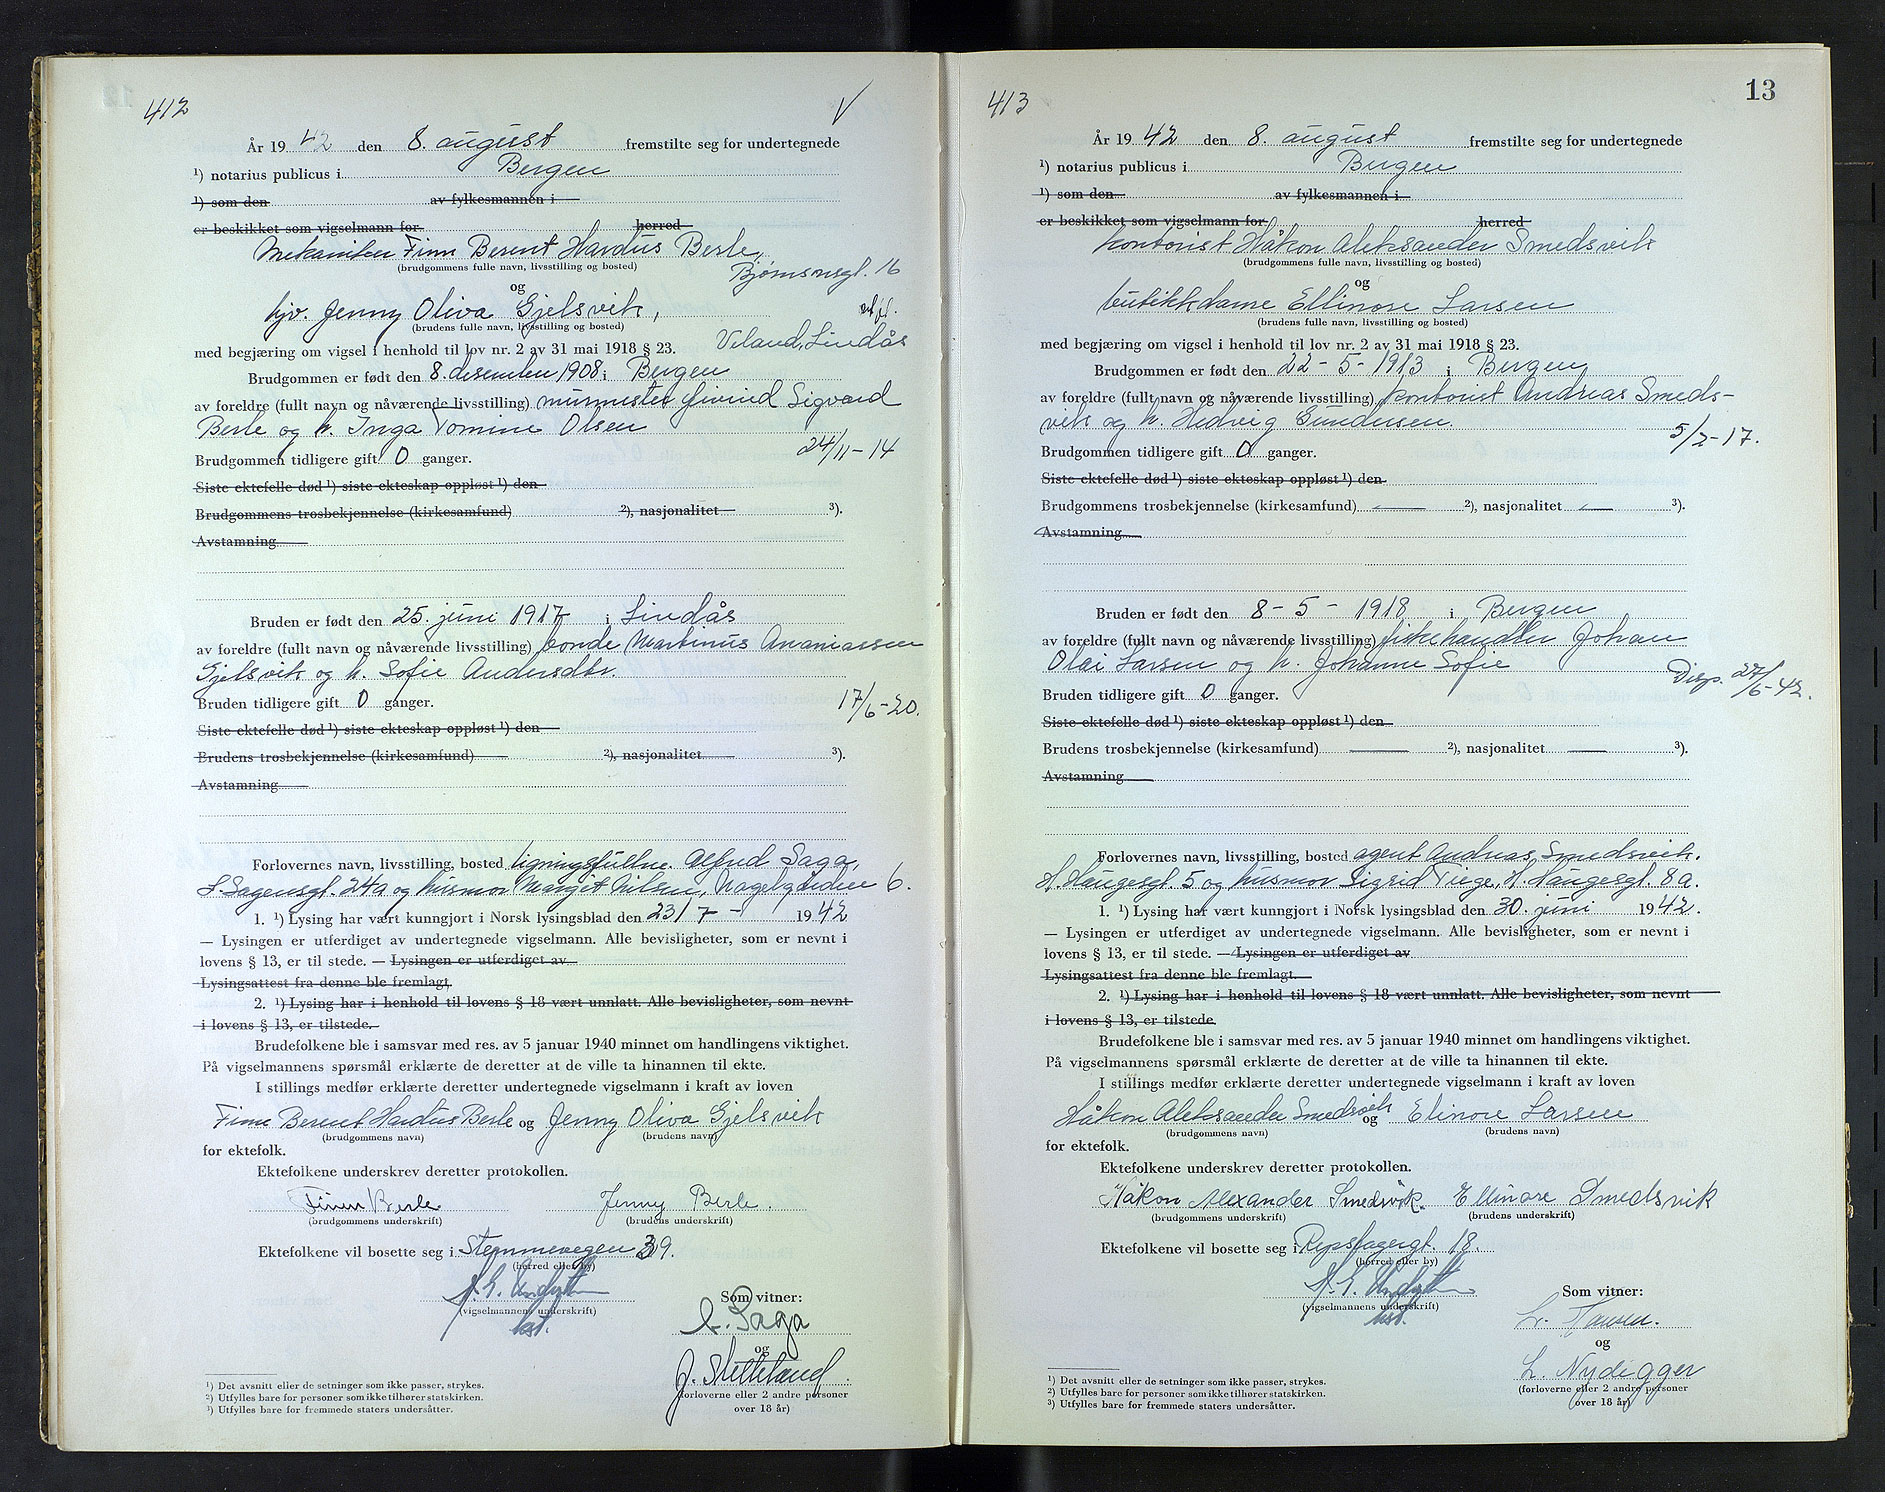 412
V
År 19 42 den 8. august fremstilte seg for undertegnede
¹) notarius publicus i Bergen
¹) som den av fylkesmannen i
er beskikket som vigselmann for herred
Mekaniker Finn Berent Hardus Berle,
(brudgommens fulle navn, livsstilling og bosted)
Bjørnsonsgt. 16
og
hjv. Jenny Oliva Gjelsvik,
(brudens fulle navn, livsstilling og bosted)
med begjæring om vigsel i henhold til lov nr. 2 av 31 mai 1918 § 23. Lindås
Brudgommen er født den 8. desember 1908 i Bergen
av foreldre (fullt navn og nåværende livsstilling) murmester Eivind Sigvard
Berle og h. Inga Tomine Olsen
24/11-14
Brudgommen tidligere gift 0 ganger.
Siste ektefelle død ¹) siste ekteskap oppløst ¹) den
Brudgommens trosbekjennelse (kirkesamfund) ²), nasjonalitet ³).
Avstamning
Bruden er født den 25. juni 1917 i Lindås
av foreldre (fullt navn og nåværende livsstilling) bonde Martinus Ananiassen
Gjelsvik og h. Sofie Andersdtr.
Bruden tidligere gift 0 ganger. 17/6-20.
Siste ektefelle død ¹) siste ekteskap oppløst ¹) den
Brudens trosbekjennelse (kirkesamfund) ²), nasjonalitet ³).
Avstamning
Forlovernes navn, livsstilling, bosted ligningsfullm. Alfred Saga,
L. Sagensgt. 24a og husmor Margit Nilsen, Nagelgården 6.
1. ¹) Lysing har vært kunngjort i Norsk lysingsblad den 23/7 - 1942
— Lysingen er utferdiget av undertegnede vigselmann. Alle bevisligheter, som er nevnt i
lovens § 13, er til stede. — Lysingen er utferdiget av
Lysingsattest fra denne ble fremlagt.
2. ¹) Lysing har i henhold til lovens § 18 vært unnlatt. Alle bevisligheter, som nevnt
i lovens § 13, er tilstede.
Brudefolkene ble i samsvar med res. av 5 januar 1940 minnet om handlingens viktighet.
På vigselmannens spørsmål erklærte de deretter at de ville ta hinannen til ekte.
I stillings medfør erklærte deretter undertegnede vigselmann i kraft av loven
Finn Berent Hardus Berle og Jenny Oliva Gjelsvik
(brudgommens navn) (brudens navn)
for ektefolk.
Ektefolkene underskrev deretter protokollen.
Finn Berle Jenny Berle.
(brudgommens underskrift) (brudens underskrift)
Ektefolkene vil bosette seg i Stemmevegen 39.
(herred eller by)
(vigselmannens underskrift)
kst.
Som vitner:
A. Saga
og
(forloverne eller 2 andre personer
over 18 år)
¹) Det avsnitt eller de setninger som ikke passer, strykes.
²) Utfylles bare for personer som ikke tilhører statskirken.
³) Utfylles bare for fremmede staters undersåtter.
413
13
År 19 42 den 8. august fremstilte seg for undertegnede
¹) notarius publicus i Bergen
¹) som den av fylkesmannen i
er beskikket som vigselmann for herred
kontorist Håkon Aleksander Smedsvik
(brudgommens fulle navn, livsstilling og bosted)
og
butikkdame Ellinore Larsen
(brudens fulle navn, livsstilling og bosted)
med begjæring om vigsel i henhold til lov nr. 2 av 31 mai 1918 § 23.
Brudgommen er født den 22-5-1913 i Bergen
av foreldre (fullt navn og nåværende livsstilling) kontorist Andreas Smeds-
vik og h. Hedvig Gundersen.
5/2-17.
Brudgommen tidligere gift 0 ganger.
Siste ektefelle død ¹) siste ekteskap oppløst ¹) den
Brudgommens trosbekjennelse (kirkesamfund) — ²), nasjonalitet — ³).
Avstamning
Bruden er født den 8-5-1918 i Bergen
av foreldre (fullt navn og nåværende livsstilling) fiskehandler Johan
Olai Larsen og h. Johanne Sofie
Disp. 27/6-42.
Bruden tidligere gift 0 ganger.
Siste ektefelle død ¹) siste ekteskap oppløst ¹) den
Brudens trosbekjennelse (kirkesamfund) — ²), nasjonalitet — ³).
Avstamning
Forlovernes navn, livsstilling, bosted agent Andreas Smedsvik.
H. Haugesgt. 5 og husmor Sigrid Tuge, H. Haugesgt. 8a.
1. ¹) Lysing har vært kunngjort i Norsk lysingsblad den 30. juni 1942.
— Lysingen er utferdiget av undertegnede vigselmann. Alle bevisligheter, som er nevnt i
lovens § 13, er til stede. — Lysingen er utferdiget av
Lysingsattest fra denne ble fremlagt.
2. ¹) Lysing har i henhold til lovens § 18 vært unnlatt. Alle bevisligheter, som nevnt
i lovens § 13, er tilstede.
Brudefolkene ble i samsvar med res. av 5 januar 1940 minnet om handlingens viktighet.
På vigselmannens spørsmål erklærte de deretter at de ville ta hinannen til ekte.
I stillings medfør erklærte deretter undertegnede vigselmann i kraft av loven
Håkon Aleksander Smedsvik og Elinore Larsen
(brudgommens navn) (brudens navn)
for ektefolk.
Ektefolkene underskrev deretter protokollen.
Håkon Alexander Smedsvik. Ellinore Smedsvik
(brudgommens underskrift) (brudens underskrift)
Ektefolkene vil bosette seg i Repslagergt. 18.
(herred eller by)
(vigselmannens underskrift)
kst.
Som vitner:
L. Hansen.
og
L. Nydegger
(forloverne eller 2 andre personer
over 18 år)
¹) Det avsnitt eller de setninger som ikke passer, strykes.
²) Utfylles bare for personer som ikke tilhører statskirken.
³) Utfylles bare for fremmede staters undersåtter.